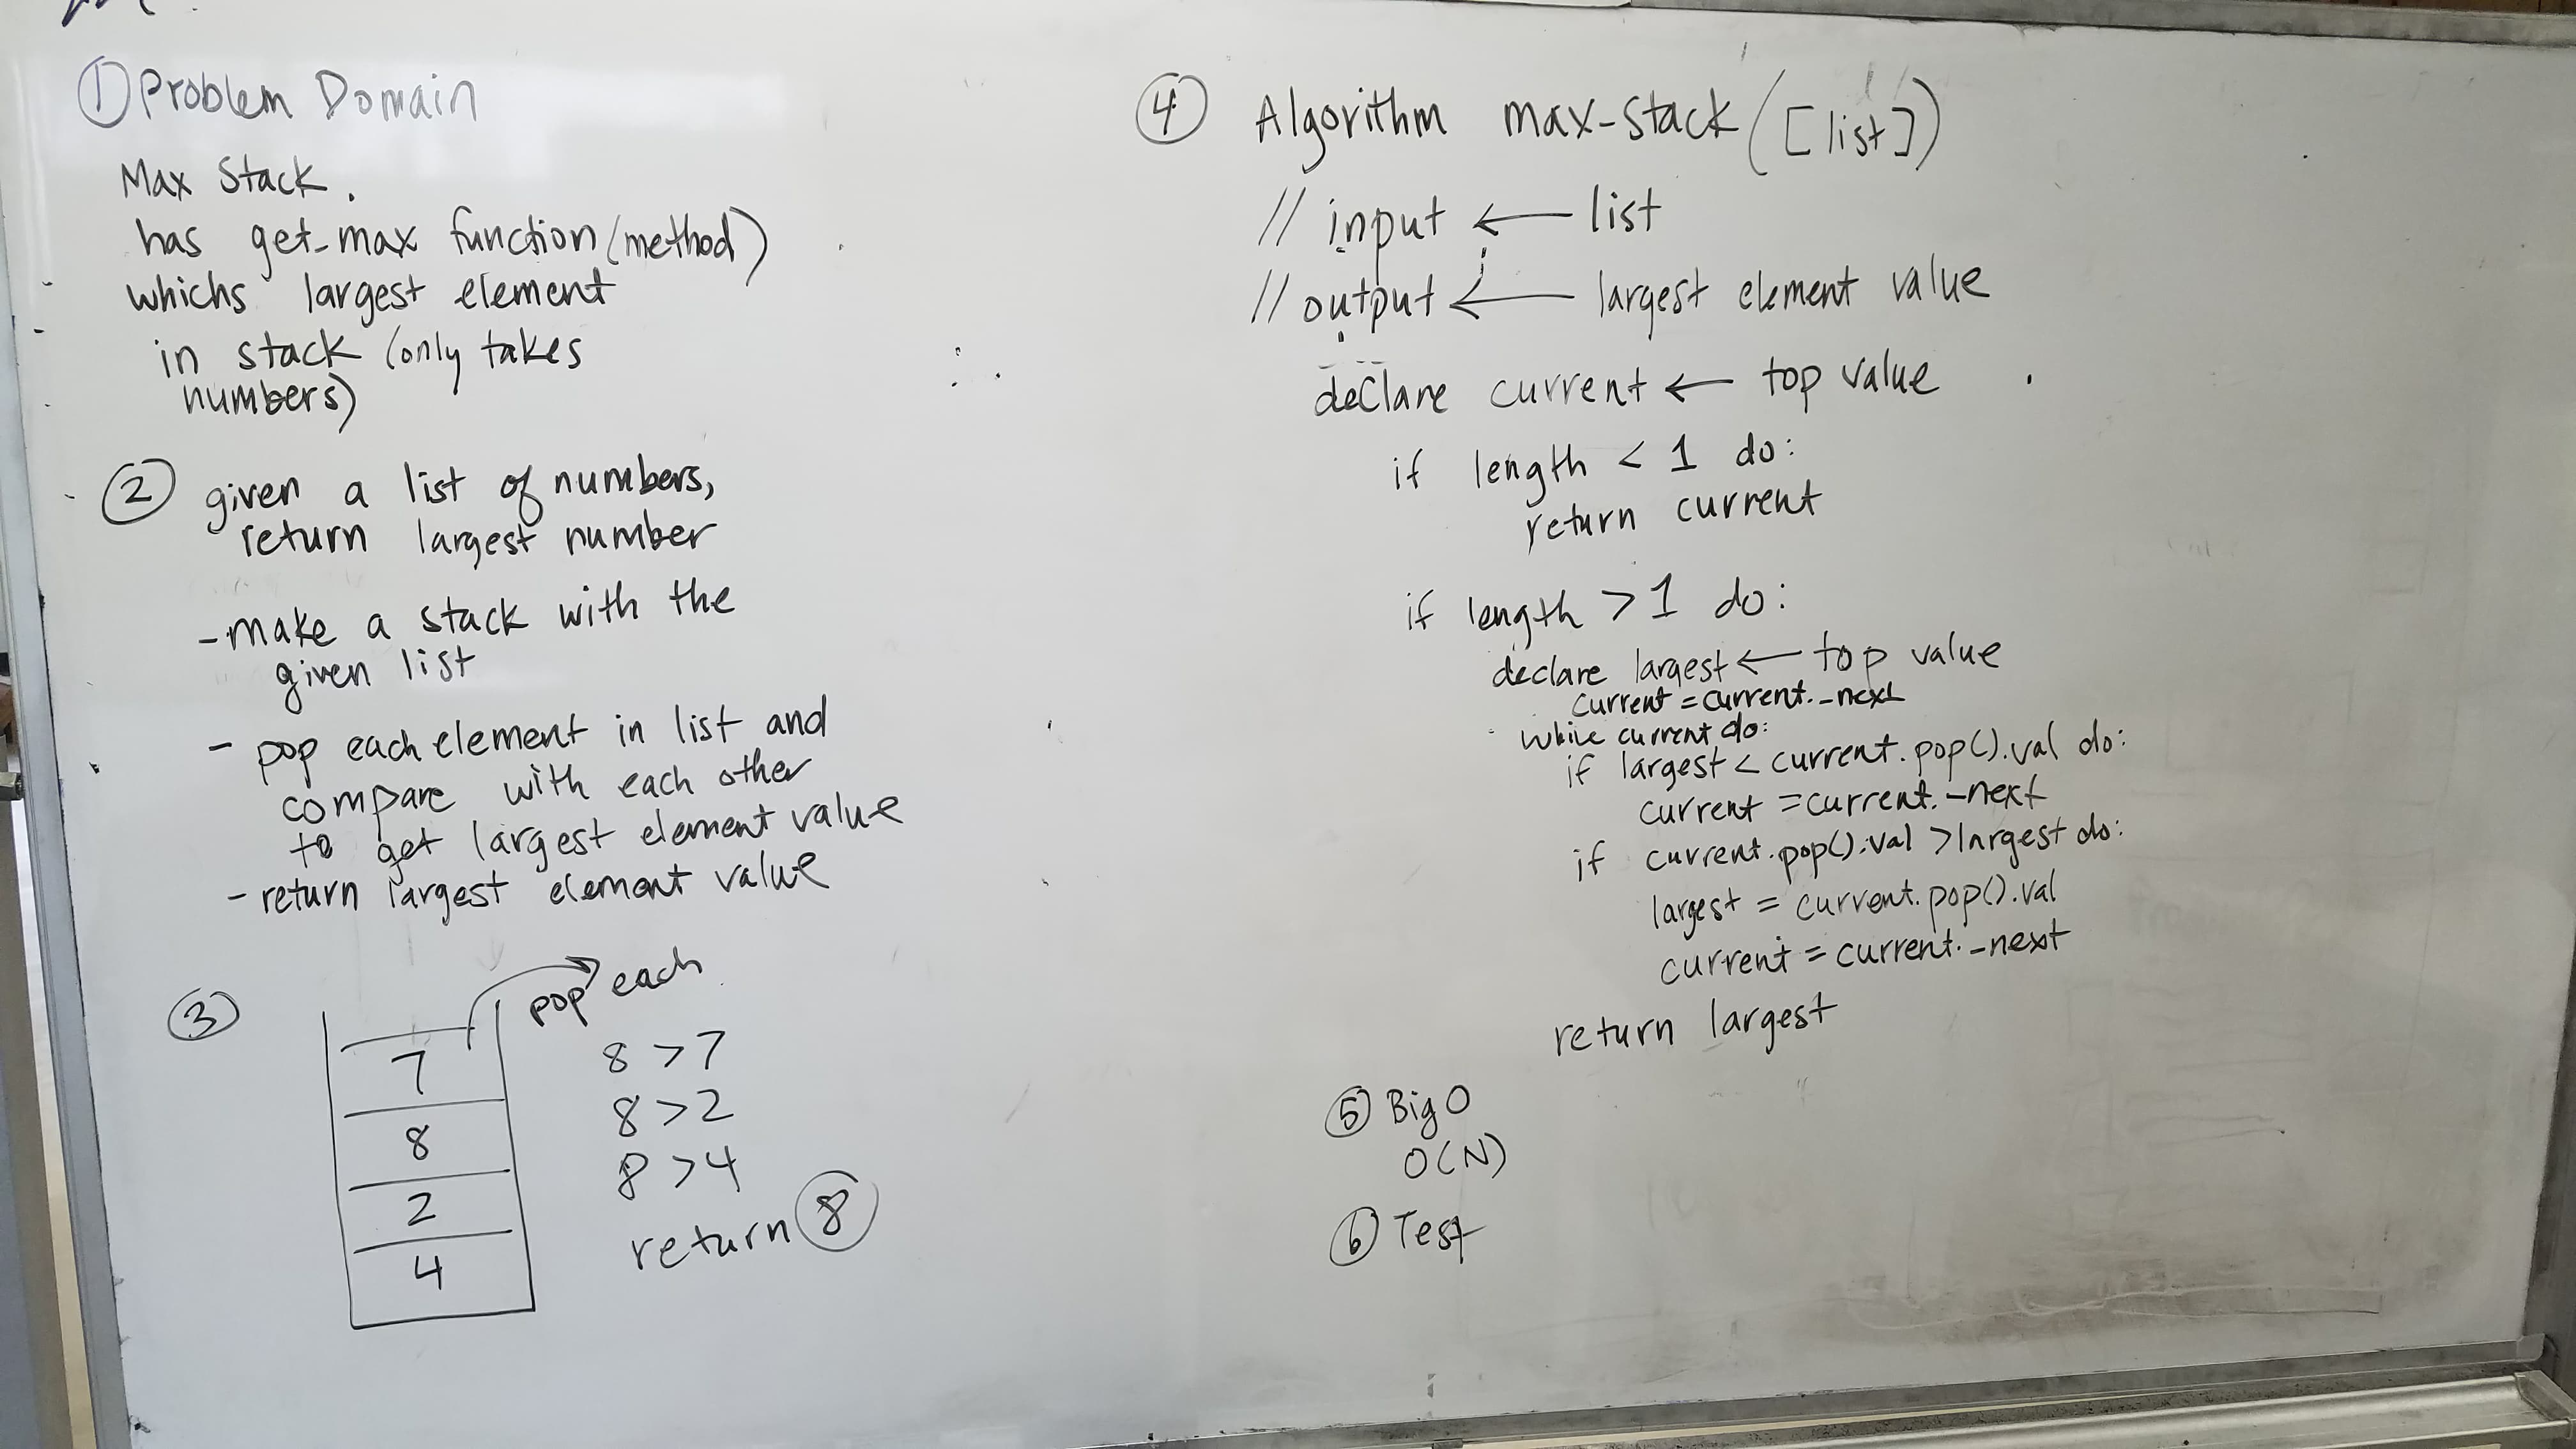 ① Problem Domain
Max Stack.
has get_max function (method)
whichs largest element
in stack (only takes
numbers)
② given a list of numbers,
return largest number
- make a stack with the
given list
- pop each element in list and
compare with each other
to get largest element value
- return largest element value
③
pop each
7
8
2
4
8 > 7
8 > 2
8 > 4
return 8
④ Algorithm max-stack([list])
// input ← list
// output ← largest element value
declare current ← top value
if length < 1 do:
return current
if length > 1 do:
declare largest ← top value
current = current._next
while current do:
if largest < current.pop().val do:
current = current._next
if current.pop().val > largest do:
largest = current.pop().val
current = current._next
return largest
⑤ Big O
O(N)
⑥ Test